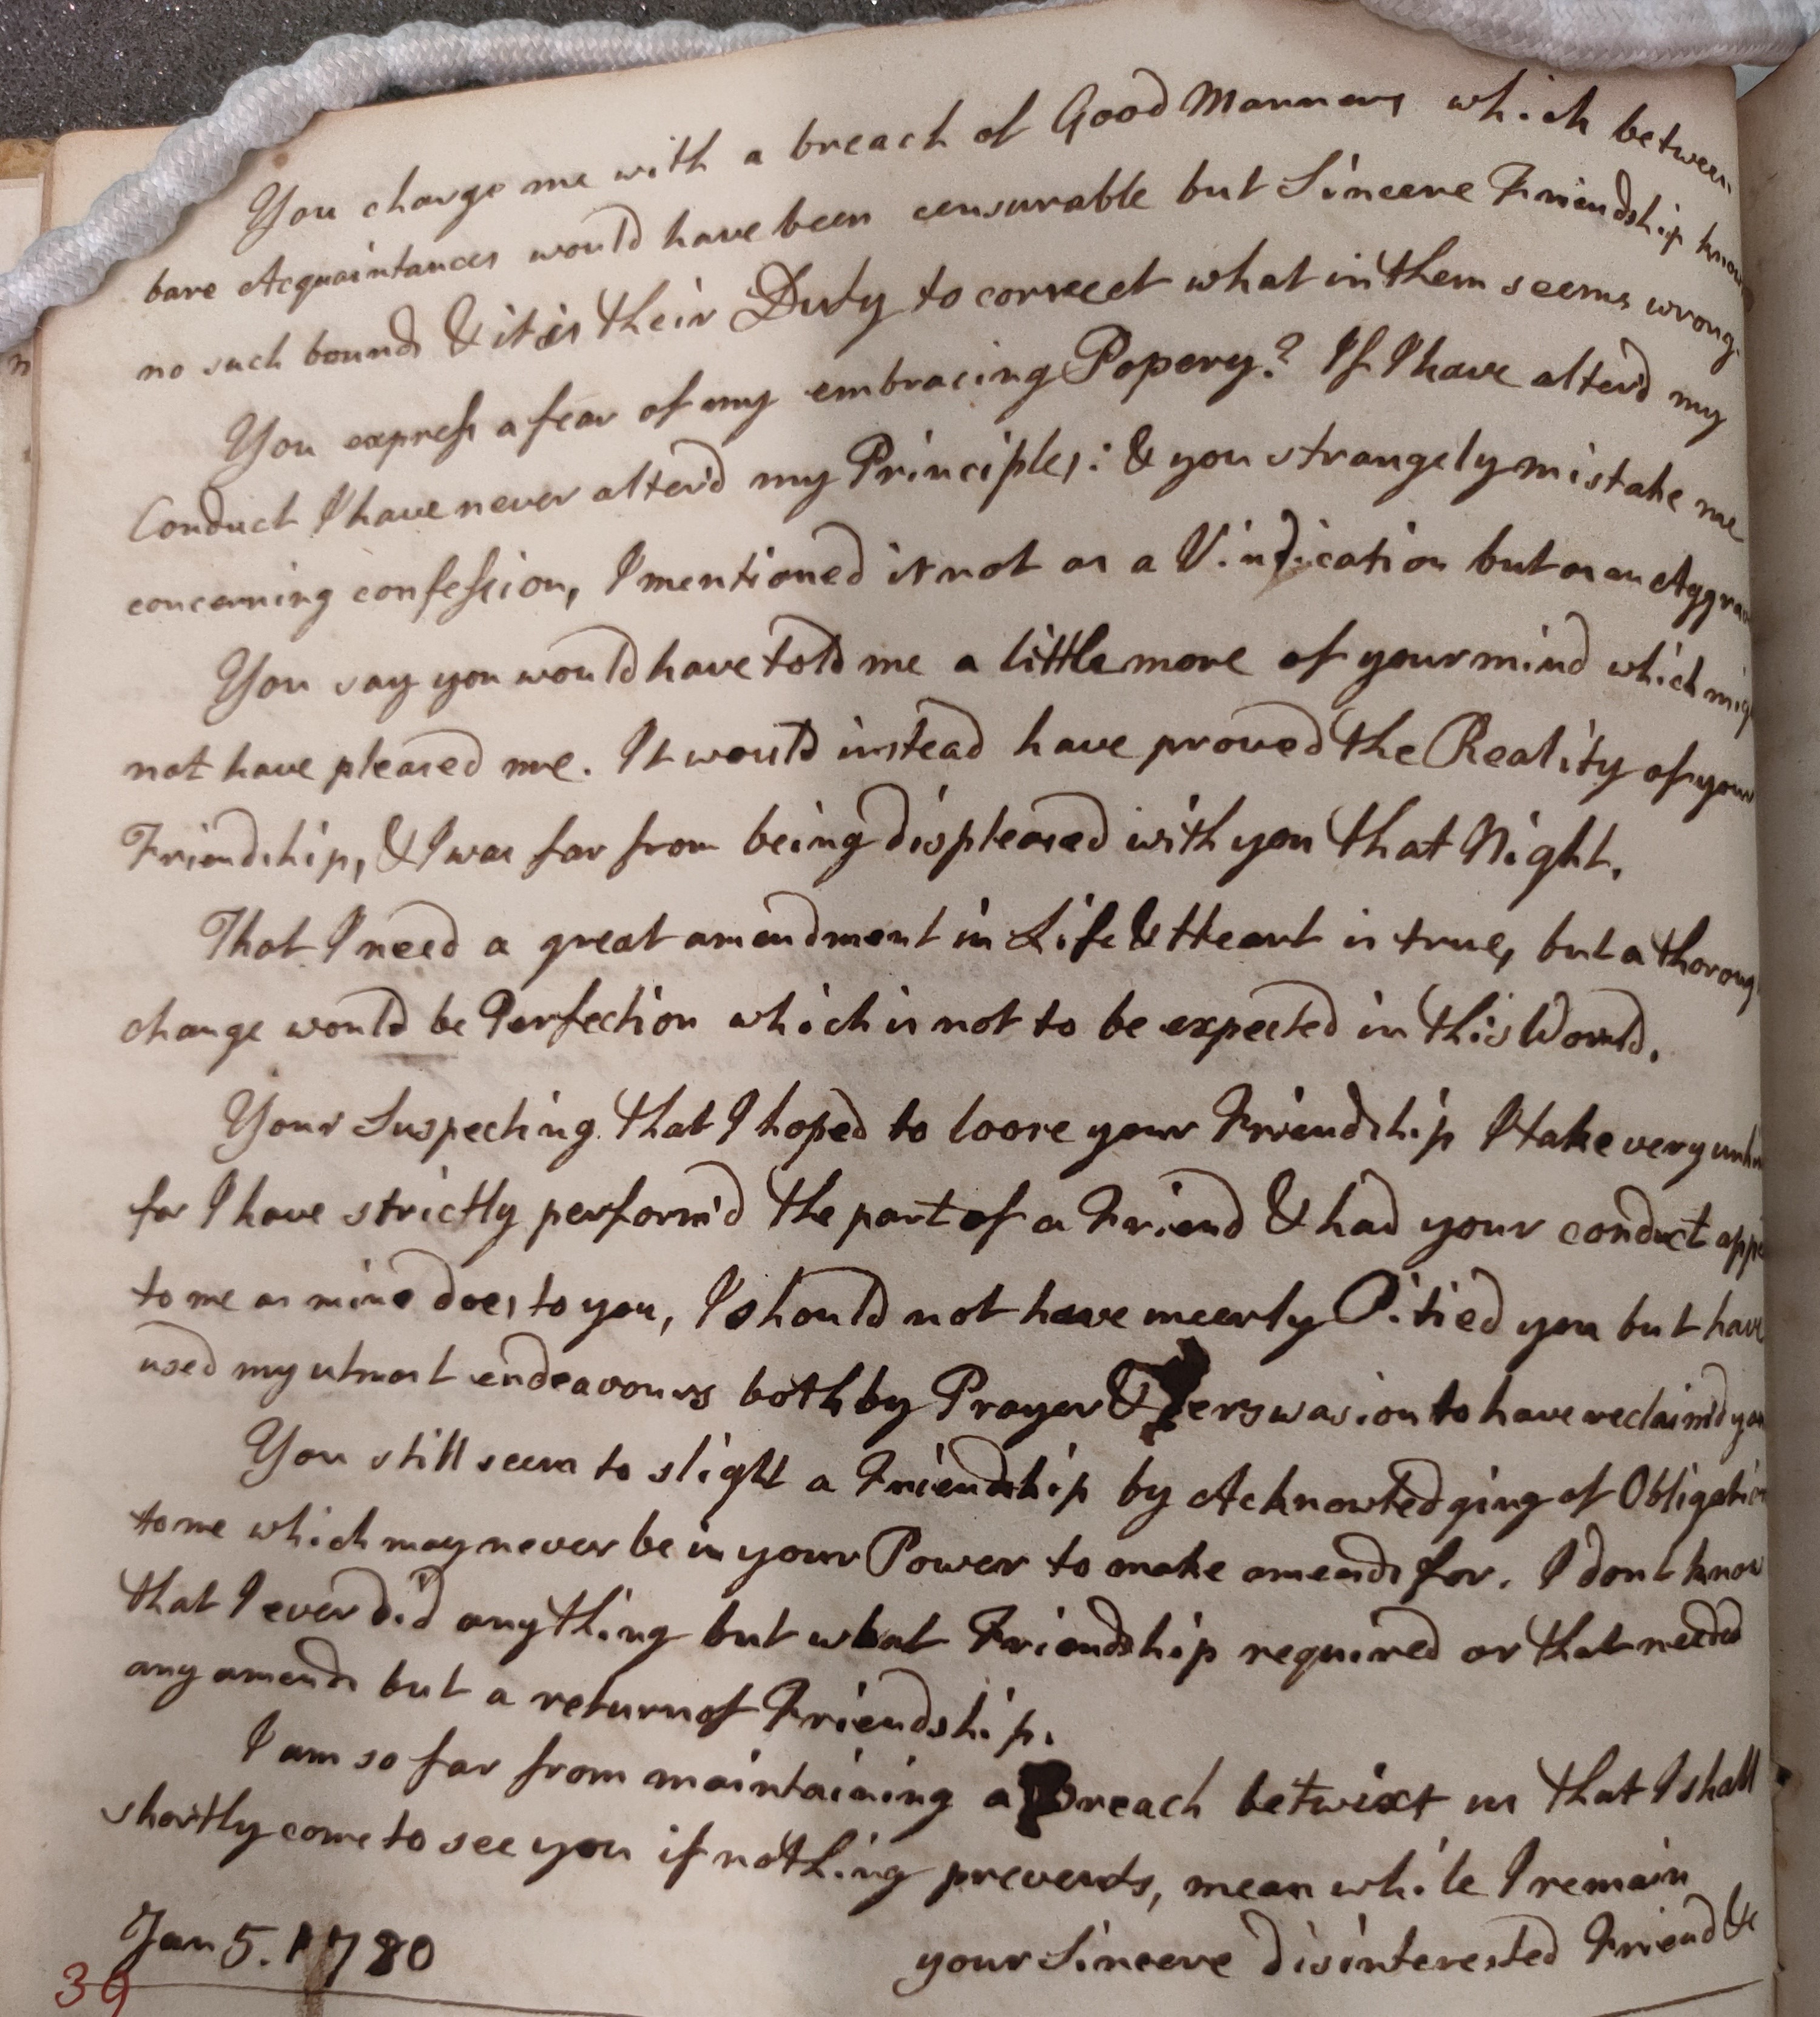 You charge me with a breach of Good Manners which between
bare Acquaintances would have been censurable but Sincere Friendship know
no such bounds & it is their Duty to correct what in them seems wrong.
You expreſs a fear of my embracing Popery? If I have alter'd my
Conduct I have never alter'd my Principles: & you strangely mistake me
concerning confeſsion, I mentioned it not as a Vindication but as an Aggrav
You say you would have told me a little more of your mind which mig
not have pleased me. It would instead have proved the Reality of your
Friendship, & I was far from being displeased with you that Night.
That I need a great amendment in Life & Heart is true, but a thoroug
change would be Perfection which is not to be expected in this World.
Your Suspecting that I hoped to loose your Friendship I take very unkin
for I have strictly perform'd the part of a Friend & had your conduct appe
to me as mine does to you, I should not have meerly Pitied you but have
used my utmost endeavours both by Prayer & Perswasion to have reclaim'd you
You still seem to slight a Friendship by Acknowledging of Obligation
to me which may never be in your Power to make amends for. I dont know
that I ever did any thing but what Friendship required or that needed
any amends but a return of Friendship.
I am so far from maintaining a Breach betwixt us that I shall
shortly come to see you if nothing prevents, mean while I remain
your Sincere disinterested Friend &c
Jan 5. 1780
39